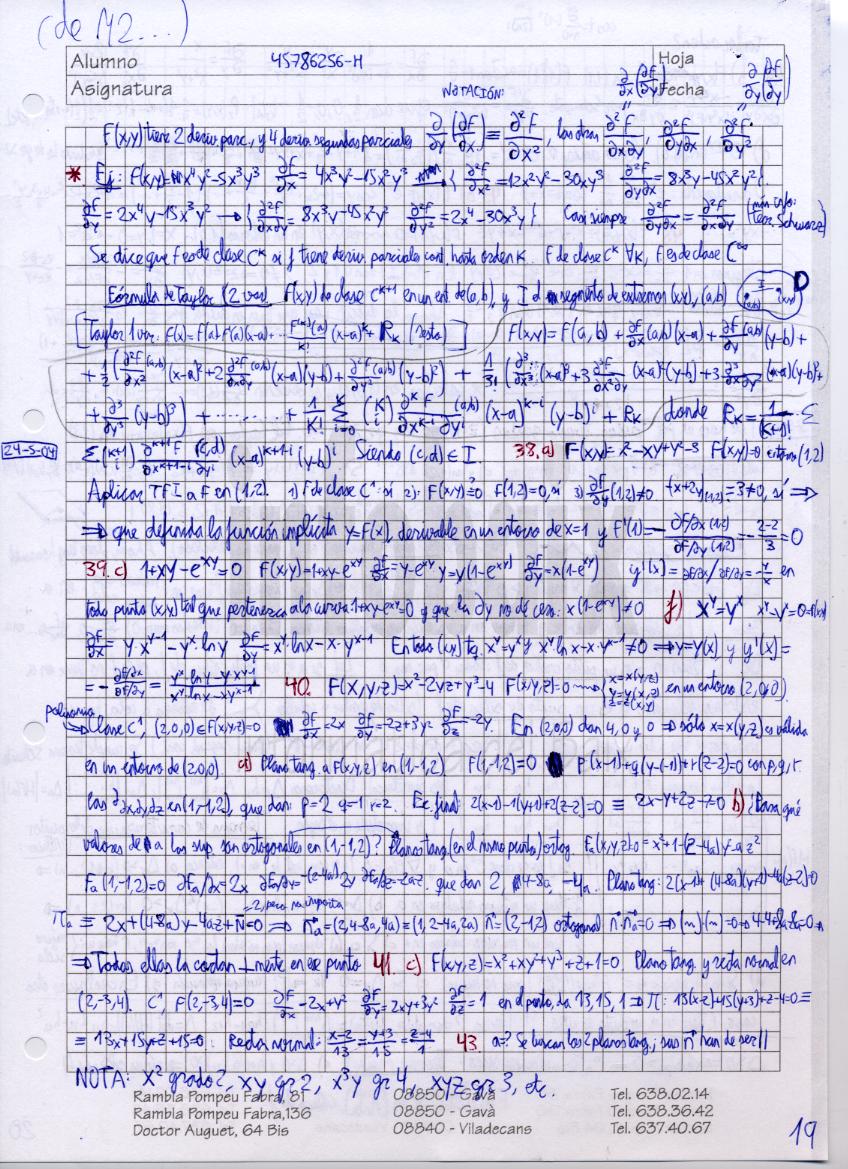 (de M2...)
Alumno 45786256-H Hoja
Asignatura NOTACIÓN: Fecha ∂/∂x(∂F/∂y) ∂/∂y(∂F/∂y)
F(x,y) tiene 2 deriv. parc. y 4 deriv. segundas parciales ∂/∂y(∂F/∂x) ≡ ∂²F/∂x², las otras ∂²F/∂x∂y, ∂²F/∂y∂x, ∂²F/∂y²
* Ej: F(x,y)=x⁴y²-5x³y³ ∂F/∂x = 4x³y²-15x²y³ { ∂²F/∂x² = 12x²y²-30xy³ ∂²F/∂y∂x = 8x³y-45x²y² }
∂F/∂y = 2x⁴y-15x³y² → { ∂²F/∂x∂y = 8x³y-45x²y² ∂²F/∂y² = 2x⁴-30x³y } Casi siempre ∂²F/∂y∂x = ∂²F/∂x∂y (más info: Teor. Schwarz)
Se dice que F es de clase Cᵏ si f tiene deriv. parciales cont. hasta orden k. F de clase Cᵏ ∀k, F es de clase C^∞
Fórmula de Taylor (2 var) F(x,y) de clase Cᵏ⁺¹ en un ent. de (a,b), y I el segmento de extremos (x,y), (a,b) I (a,b) (x,y) D
[Taylor 1 var: F(x)=F(a)+F'(a)(x-a)+...F⁽ᵏ⁾(a)/k! (x-a)ᵏ + Rk (resto)] F(x,y) = F(a,b) + ∂F/∂x(a,b)(x-a) + ∂F/∂y(a,b)(y-b) +
+ 1/2 (∂²F/∂x²(a,b)(x-a)² + 2 ∂²F/∂x∂y(a,b)(x-a)(y-b) + ∂²F/∂y²(a,b)(y-b)²) + 1/3! (∂³/∂x³(x-a)³ + 3 ∂³F/∂x²∂y(x-a)²(y-b) + 3 ∂³/∂x∂y²(x-a)(y-b)² +
+ ∂³/∂y³(y-b)³) + ........ + 1/k! Σ_{i=0}^{k} (k i) ∂ᵏF/∂xᵏ⁻ⁱ∂yⁱ(a,b) (x-a)ᵏ⁻ⁱ (y-b)ⁱ + Rk donde Rk = 1/(k+1)! Σ
24-5-04 Σ (k+1 i) ∂ᵏ⁺¹F(c,d)/∂xᵏ⁺¹⁻ⁱ∂yⁱ (x-a)ᵏ⁺¹⁻ⁱ (y-b)ⁱ Siendo (c,d)∈I. 38.a) F(x,y)=x²-xy+y²-3 F(x,y)=0 entorno (1,2)
Aplicar TFI a F en (1,2). 1) F de clase C¹: sí 2): F(x,y)=0 f(1,2)=0, sí 3) ∂F/∂y(1,2)≠0 -x+2y|(1,2)=3≠0, sí ⇒
⇒ que definida la función implícita y=F(x), derivable en un entorno de x=1 y f'(1)= -∂F/∂x(1,2) / ∂F/∂y(1,2) = -2-2/3 = 0
39. c) 1+xy-eˣʸ=0 F(x,y)=1+xy-eˣʸ ∂F/∂x=y-eˣʸy=y(1-eˣʸ) ∂F/∂y=x(1-eˣʸ) y'(x)=∂F/∂x/∂F/∂y=-y/x en
todo punto (x,y) tal que pertenezca a la curva 1+xy-eˣʸ=0 y que la ∂y no dé cero: x(1-eˣʸ)≠0 f) xʸ=yˣ xʸ-yˣ=0=F(x,y)
∂F/∂x = y·xʸ⁻¹-yˣ ln y ∂F/∂y = xʸ ln x-x·yˣ⁻¹ En todo (x,y) tq. xʸ=yˣ y xʸ ln x-x·yˣ⁻¹≠0 ⇒ y=y(x) y y'(x)=
= -∂F/∂x / ∂F/∂y = yˣ ln y-y xʸ⁻¹ / xʸ ln x-x yˣ⁻¹ 40. F(x,y,z)=x²-2yz+y³-4 F(x,y,z)=0 ⟶ {x=x(y,z) y=y(x,z) z=z(x,y) en un entorno (2,0,0).
polinomio ⇒ Clase C¹, (2,0,0)∈F(x,y,z)=0 ∂F/∂x=2x ∂F/∂y=-2z+3y² ∂F/∂z=-2y. En (2,0,0) dan 4, 0 y 0 ⇒ sólo x=x(y,z) es válida
en un entorno de (2,0,0). a) Plano tang. a F(x,y,z) en (1,-1,2) F(1,-1,2)=0 p(x-1)+q(y-(-1))+r(z-2)=0 con p,q,r.
las ∂∂x,∂y,∂z en (1,-1,2), que dan: p=2 q=-1 r=2. Ec. final: 2(x-1)-1(y+1)+2(z-2)=0 ≡ 2x-y+2z-7=0 b) ¿Para qué
valores de a las sup. son ortogonales en (1,-1,2)? Planos tang (en el mismo punto) ortog. Fa(x,y,z)=0=x²+1-(2-4a)y-az²
Fa(1,-1,2)=0 ∂Fa/∂x=2x ∂Fa/∂y=-(2-4a)2y ∂Fa/∂z=-2az. que dan 2, 4-8a, -4a. Plano tang: 2(x-1)+(4-8a)(y+1)-4a(z-2)=0
=2, pero no importa
Πa ≡ 2x+(4-8a)y-4az+N=0 ⇒ n⃗a=(2,4-8a,4a)=(1,2-4a,2a) n⃗=(2,-1,2) ortogonal n⃗·n⃗a=0 ⇒ (m)·(m)=0
⇒ Todas ellas la cortan ⊥mente en ese punto 41. c) F(x,y,z)=x²+xy²+y³+z+1=0. Plano tang. y recta normal en
(2,-3,4). C¹, F(2,-3,4)=0 ∂F/∂x=2x+y² ∂F/∂y=2xy+3y² ∂F/∂z=1 en el punto, da 13,15,1 ⇒ Π: 13(x-2)+15(y+3)+z-4=0≡
≡ 13x+15y+z+15=0. Recta normal: x-2/13 = y+3/15 = z-4/1 43. a=? Se buscan los 2 planos tang; sus n⃗ han de ser ||
NOTA: x² grado 2, xy gr 2, x³y gr 4, xyz gr 3, etc.
Rambla Pompeu Fabra, 81 08850 - Gavà Tel. 638.02.14
Rambla Pompeu Fabra,136 08850 - Gavà Tel. 638.36.42
Doctor Auguet, 64 Bis 08840 - Viladecans Tel. 637.40.67
19